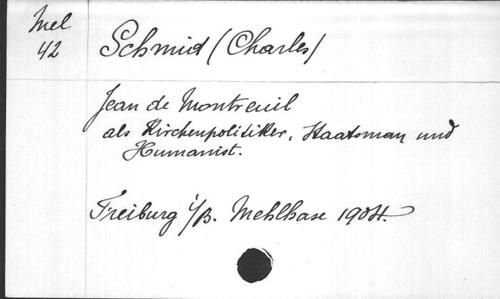 Mel
42
Schmid (Charles)
Jean de Montreuil
als Kirchenpolitiker, Staatsman und
Humanist.
Freiburg i/B. Mehlhase 1904.